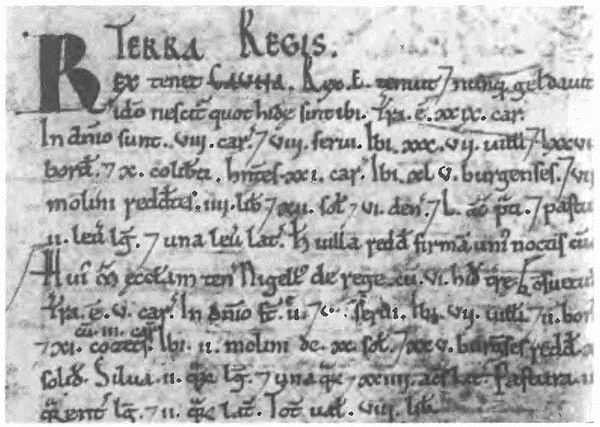 TERRA REGIS.
REX tenet CAUNA. Rex. E. tenuit 7 nunq̄ geldauit
ideo nescit̄ quot hide sint ibi. t̄ra. ē. xxix. car.
In dn̄io sunt. viii. car. 7 viii. serui. Ibi. xxx. vii. uilli 7 lxxvi
bord̄. 7 x. colib̄ti. hn̄tes. xxi. car. Ibi. xl. v. burgenses. 7 vii
molini redd̄tes. iiii. lib̄ 7 xii. sol̄ 7 vi. den. 7 L. ac̄ p̄ti. 7 pastu
ii. leū lḡ. 7 una leū lat̄. h̄ uilla redd̄ firmā uni' noctis cū
Hui' M̄ eccl̄am ten' Nigell' de rege. cū. vi. hid̄ træ.
t̄ra. ē. v. car. In dn̄io st̄. ii. 7 serui. Ibi. vii. uilli. 7 ii. bor
7 xi. cozets. cū. iii. car. Ibi. ii. molini de. xx. sol̄. 7 xxv. burgses redd̄.
solid̄. Silua. ii. q̄ lḡ. 7 una q̄ 7 xxiiii. ac̄s lat̄. Pastura.
q̄rent' lḡ. 7 ii. q̄ lat̄. Tot̄ ual̄. viii. lib̄.